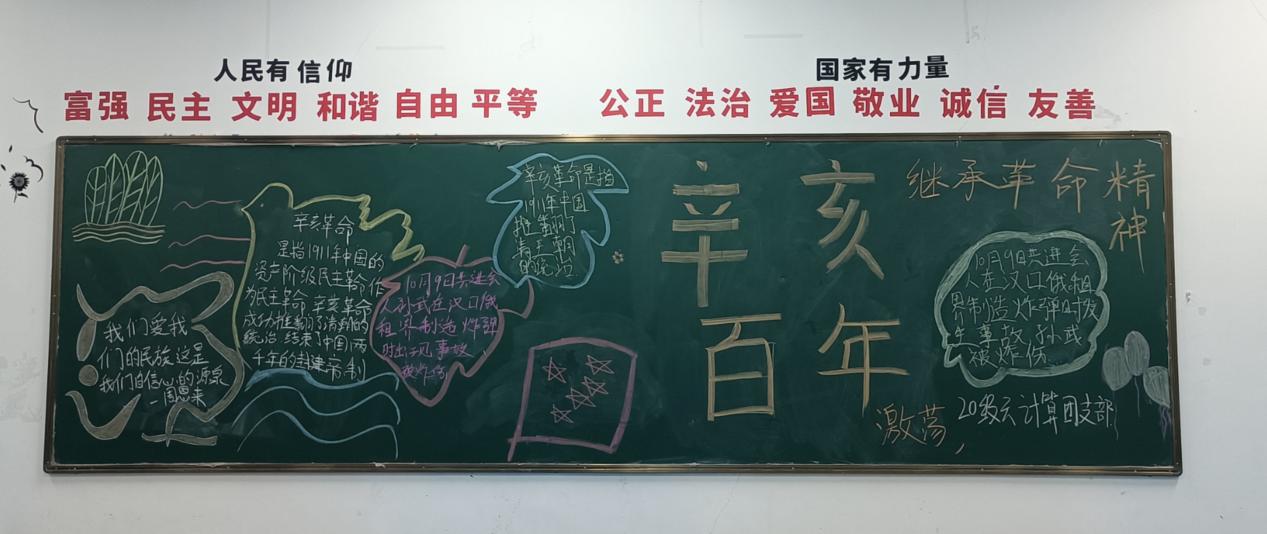 人民有信仰
国家有力量
富强 民主 文明 和谐 自由 平等
公正 法治 爱国 敬业 诚信 友善
我们爱我
们的民族,这是
我们的信心的源泉
—周恩来
辛亥革命
是指1911年中国的
资产阶级民主革命,作
为民主革命,辛亥革命
成功推翻了清朝的
统治,结束了中国两
千年的封建帝制
10月9日共进会
人孙武在汉口俄
租界制造炸弹
时出现事故
被炸伤
辛亥革命是指
1911年中国
推翻了
清王朝
的统治
辛亥
百年
激荡,
继承革命精
神
10月9日共进会
人在汉口俄租
界制造炸弹时发
生事故,孙武
被炸伤
20级云计算团支部